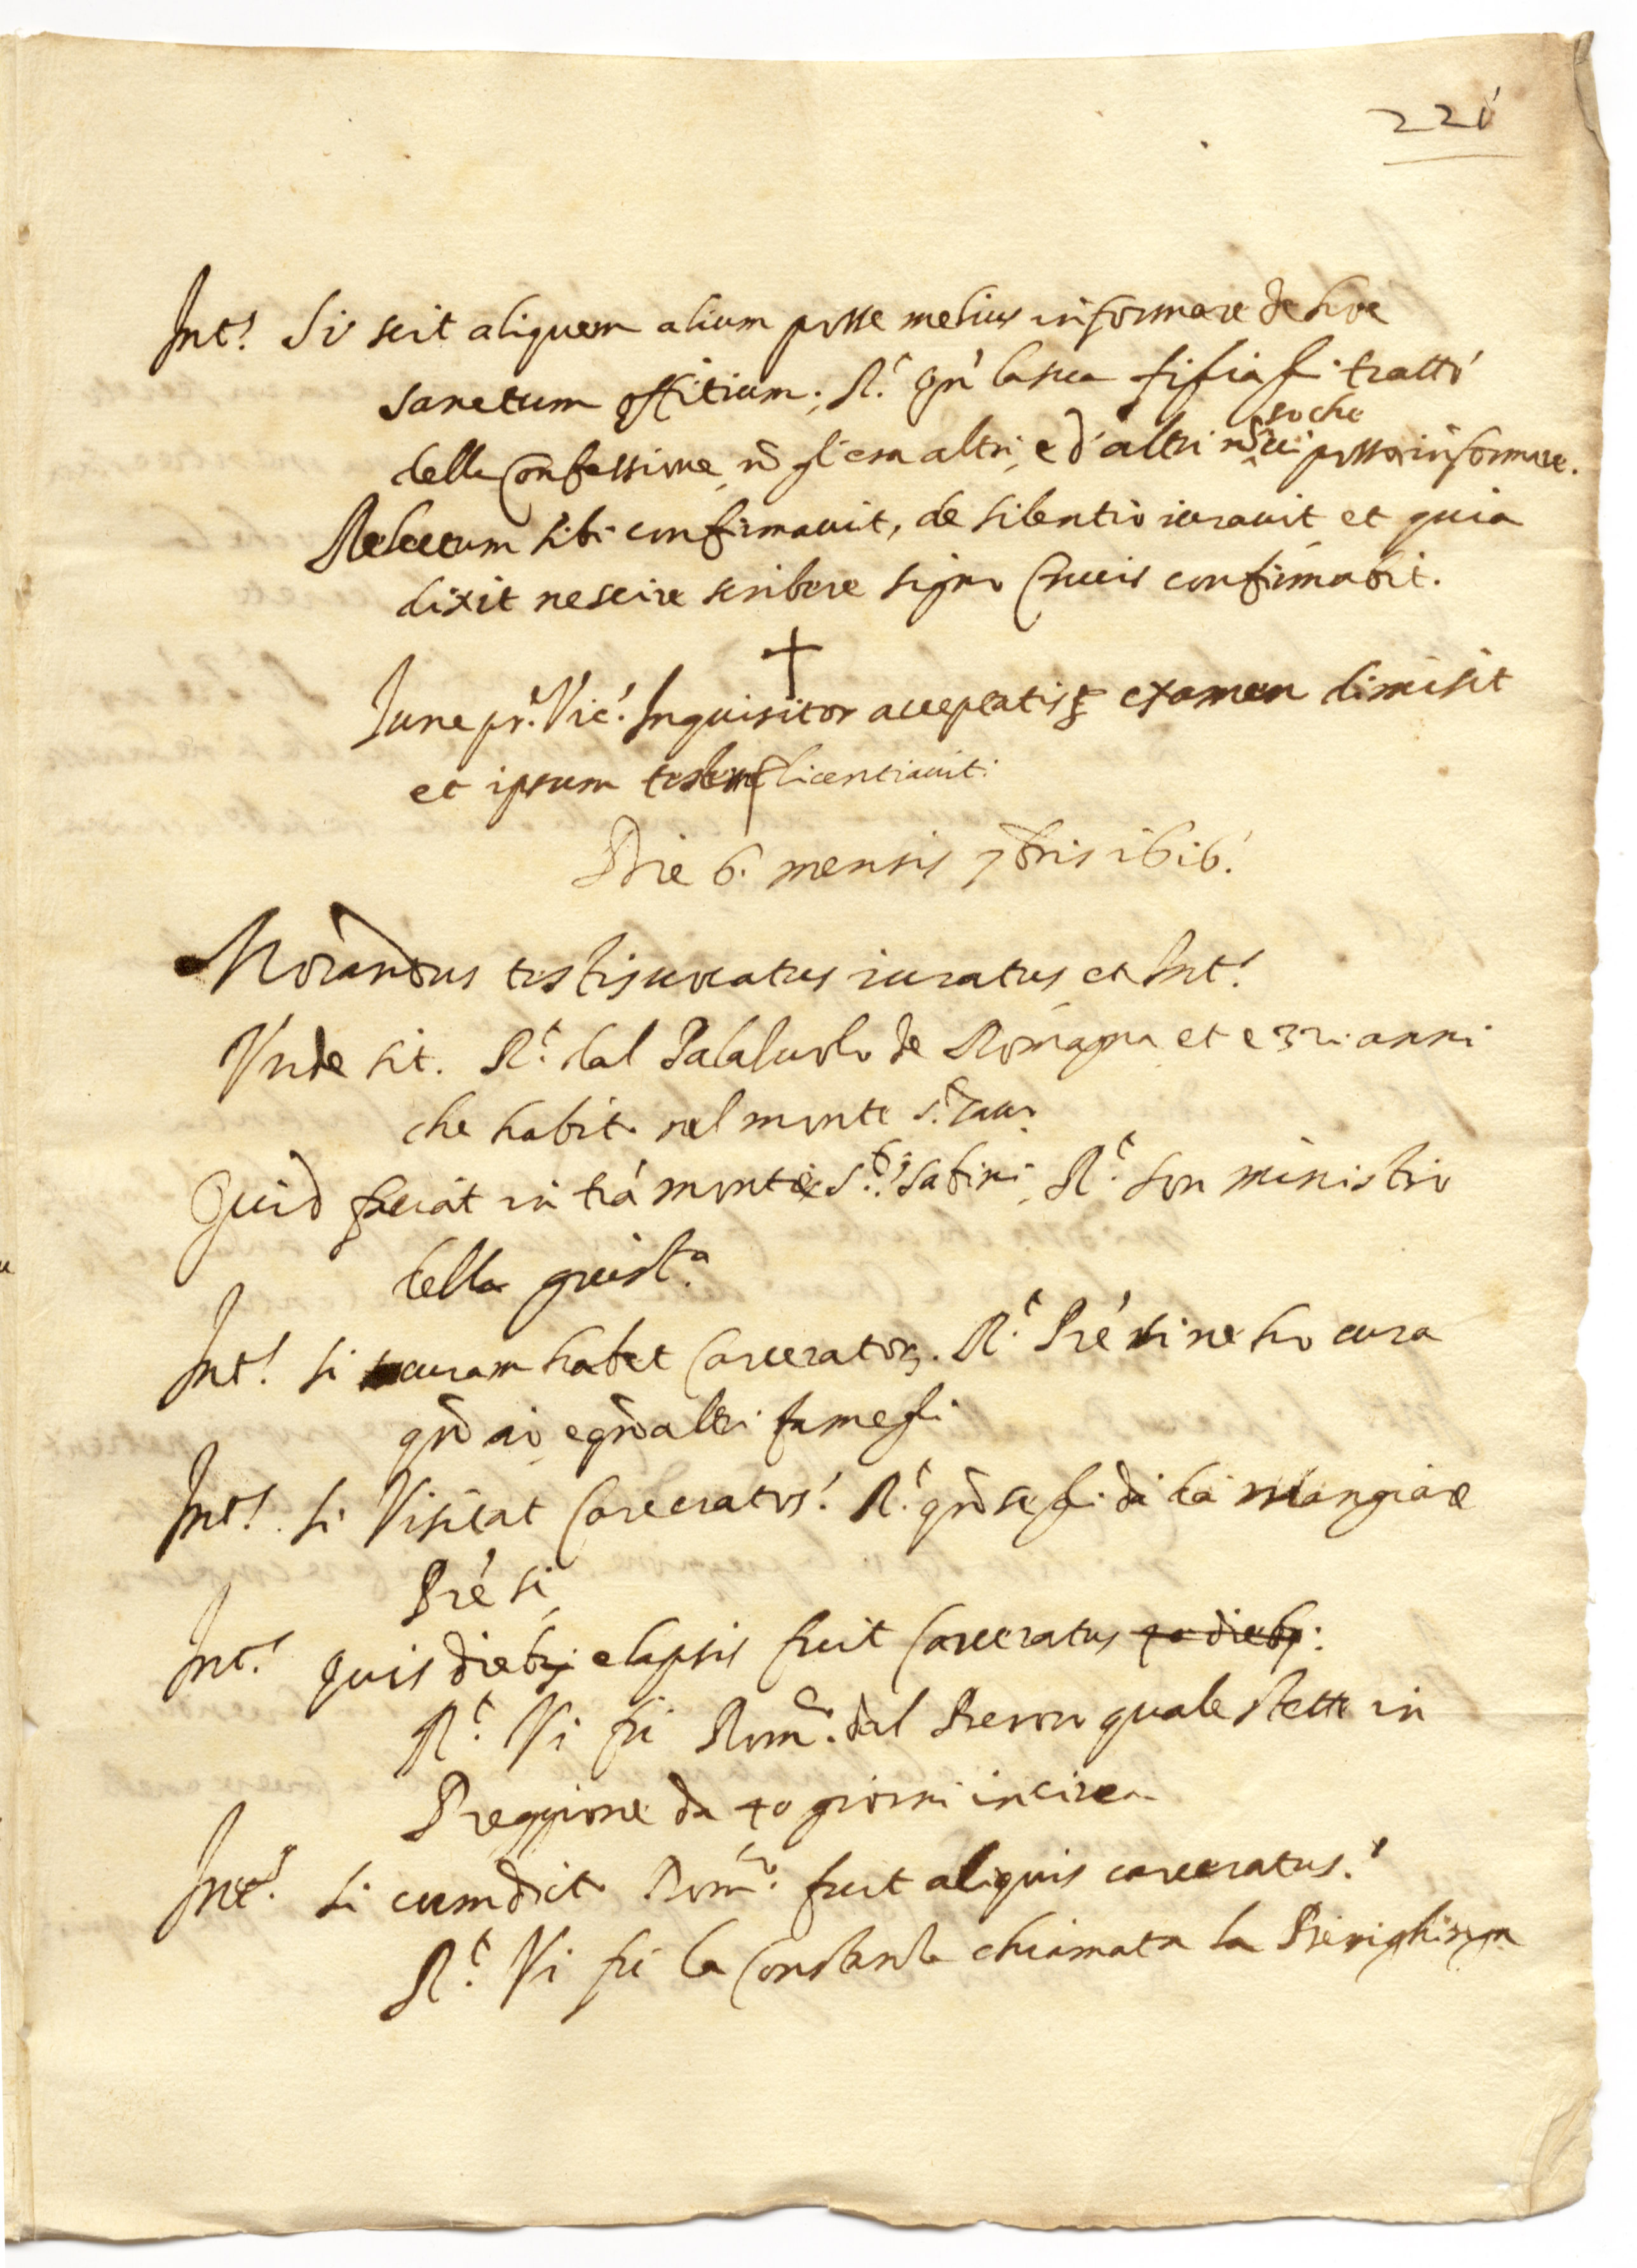 221
Int.s Si scit aliquem alium posse melius informare de hoc
sanctum offitium; R.t qn la sua fifia si trattò
della Confessione, nõ gl'era altri, e d'altri nõ so che ci possa informare.
Relectum sibi confirmavit, de silentio iuravit et quia
dixit nescire scribere signo Crucis confirmabit.
+
Tunc pr. Vic. Inquisitor acceptatis examen dimisit
et ipsum testem licentiavit.
Die 6. mensis 7bris 1616.
Morandus testis vocatus iuratus et Int.s
Unde sit. R.t dal de Romagna et e 32. anni
che habit nel monte S.
Quid faciat in monte S. R.t son ministro
della giust.a
Int.s si curam habet Carcerator. R.t Prê si ne ho cura
qñ io, e qñ altri fameli
Int.s si Visitat Carceratos. R.t qñ se li dà da mangiare
Prê si
Int.s quis diebus elapsis fuit Carceratus 40 diebus:
R.t Vi fu Rom.o dal quale stette in
Preggione da 40 giorni incirca
Int.s si cum dict. Rom.o fuit aliquis carceratus.
R.t Vi fu la Constante chiamata la